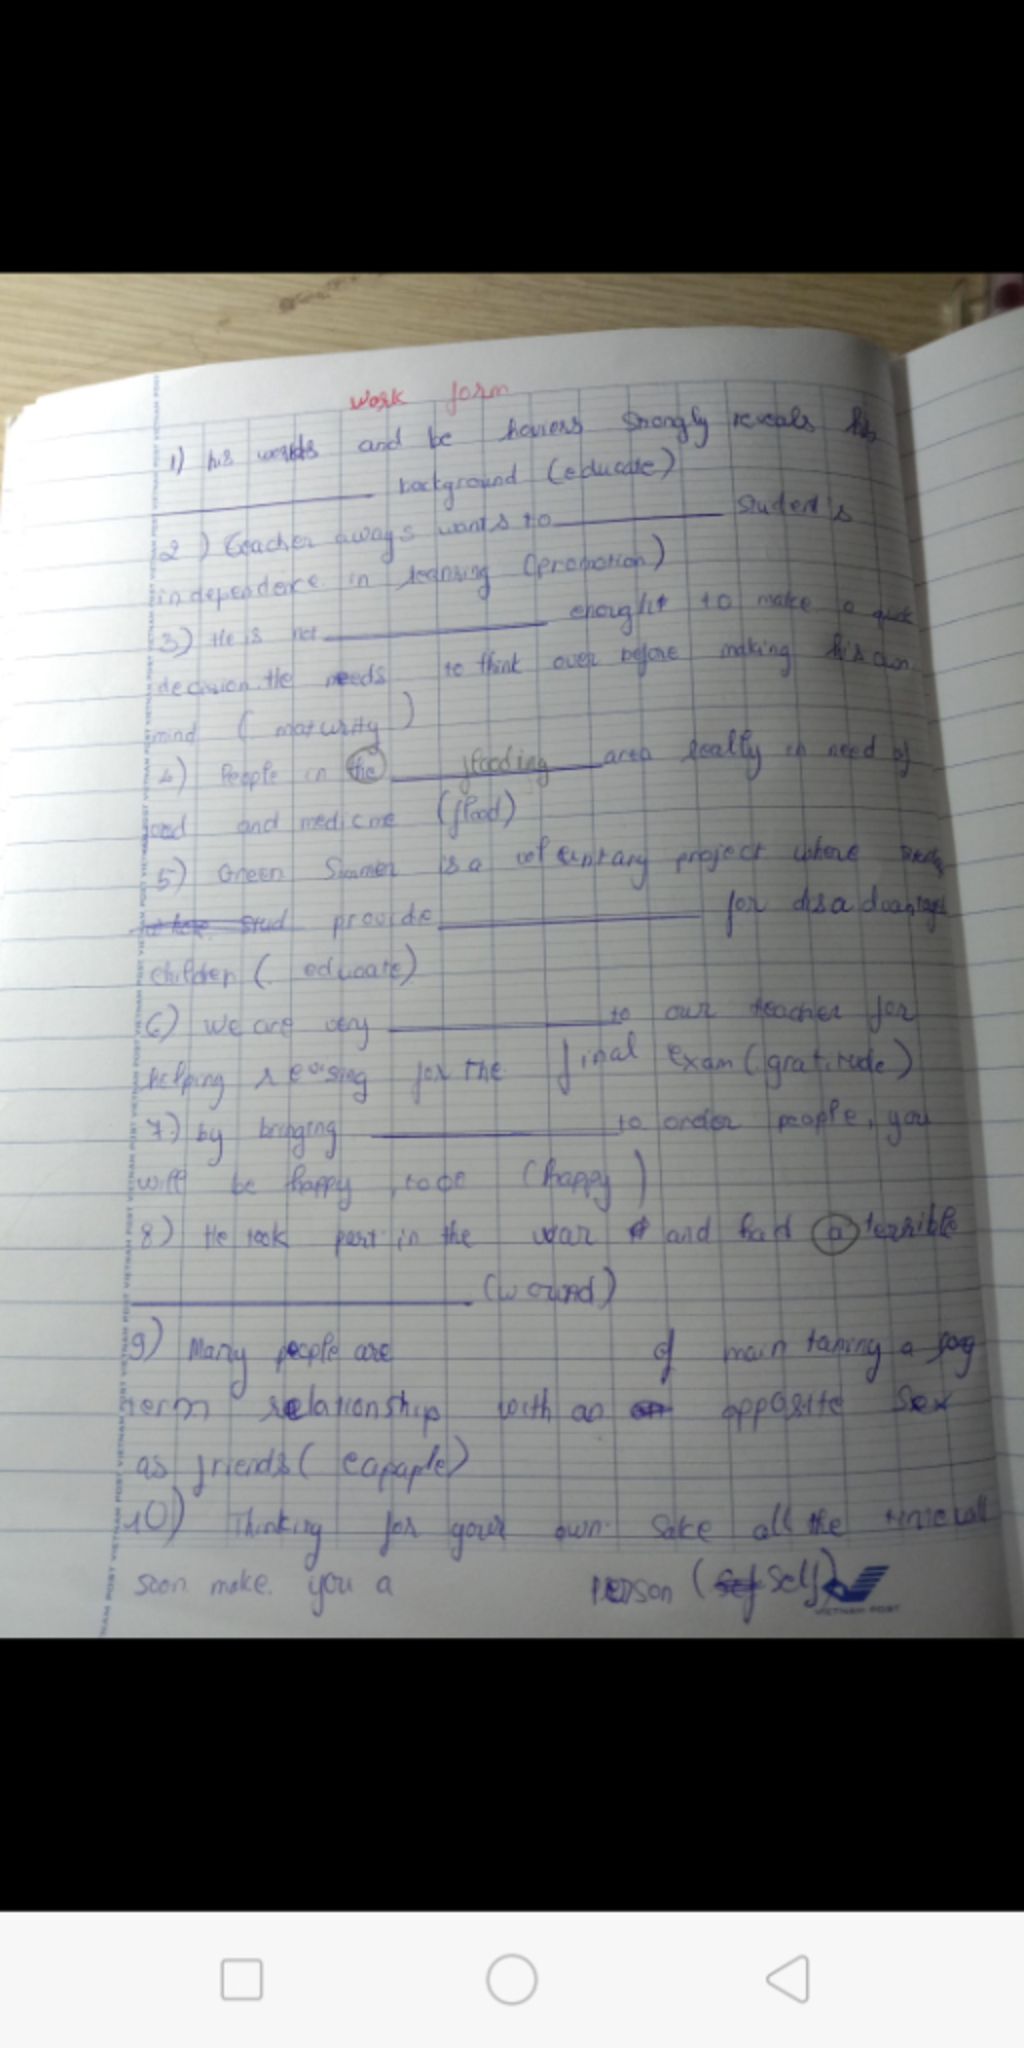 work form
1) his works and be haviers strongly reveals his
background (educate)
2) teacher aways wants to student's
independence in learning (promotion)
3) He is not enought to make a quick
decision. He needs to think over before making his own
mind ( maturity )
4) People in the flooding area really in need of
food and medicine (flood)
5) Green Summer is a voluntary project where
provide for disadvantage
children ( educate)
6) We are very to our teacher for
helping revising for the final exam (gratitude)
7) by bringing to order people, you
will be happy, (happy)
8) He took part in the war and had a terrible
(wound)
9) Many people are of main taning a long
term relationship with an opposite Sex
as friends ( capaple)
10) Thinking for your own sake all the time
soon make you a person (self)
VIETNAM POST